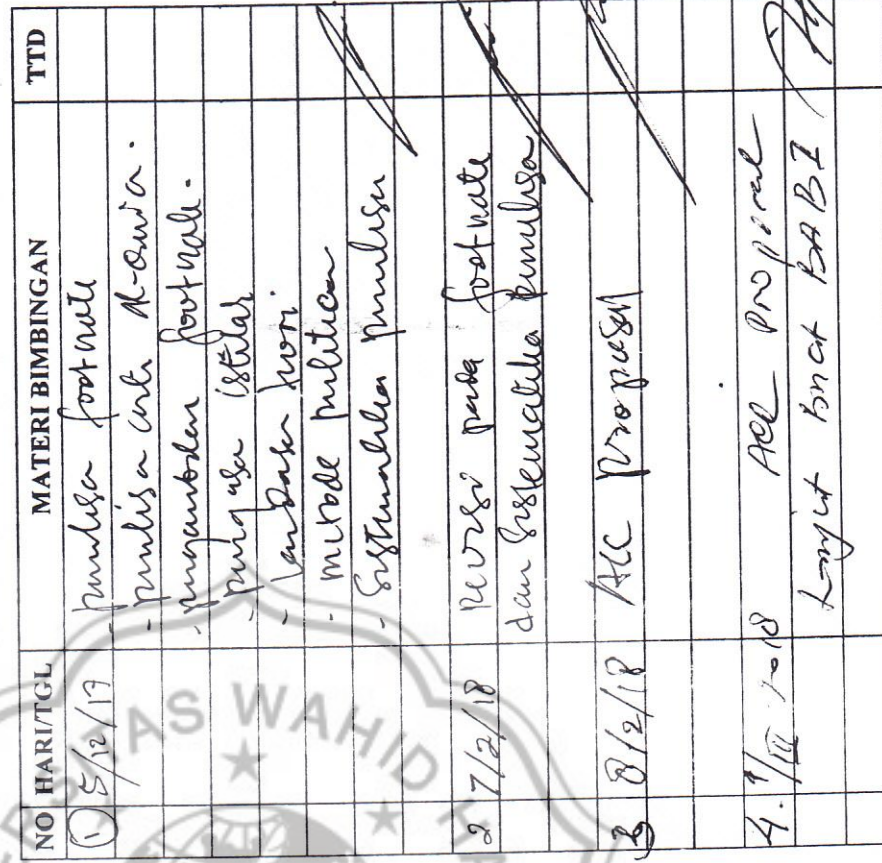 NO HARI/TGL MATERI BIMBINGAN TTD
1 5/12/17 - penulisan footnote
- penulisan arti Al-Qur'an.
- pengambilan footnote.
- penegasan istilah
- landasan teori.
- metode penelitian
- Sistematika penulisan
2 7/2/18 revisi pada footnote
dan Sistematika penulisan
3 8/2/18 ACC Proposal
4. 1/III 2018 ACC Proposal
Lanjut buat BAB I
SITAS WAHID